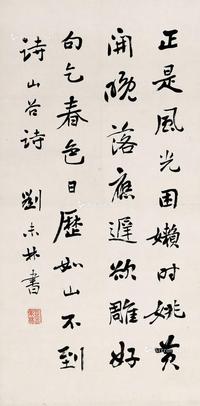 正是風光困嬾时姚黄
開晚落應遲欲雕好
句乞春色日歷如山不到
诗山谷诗
劉未林書